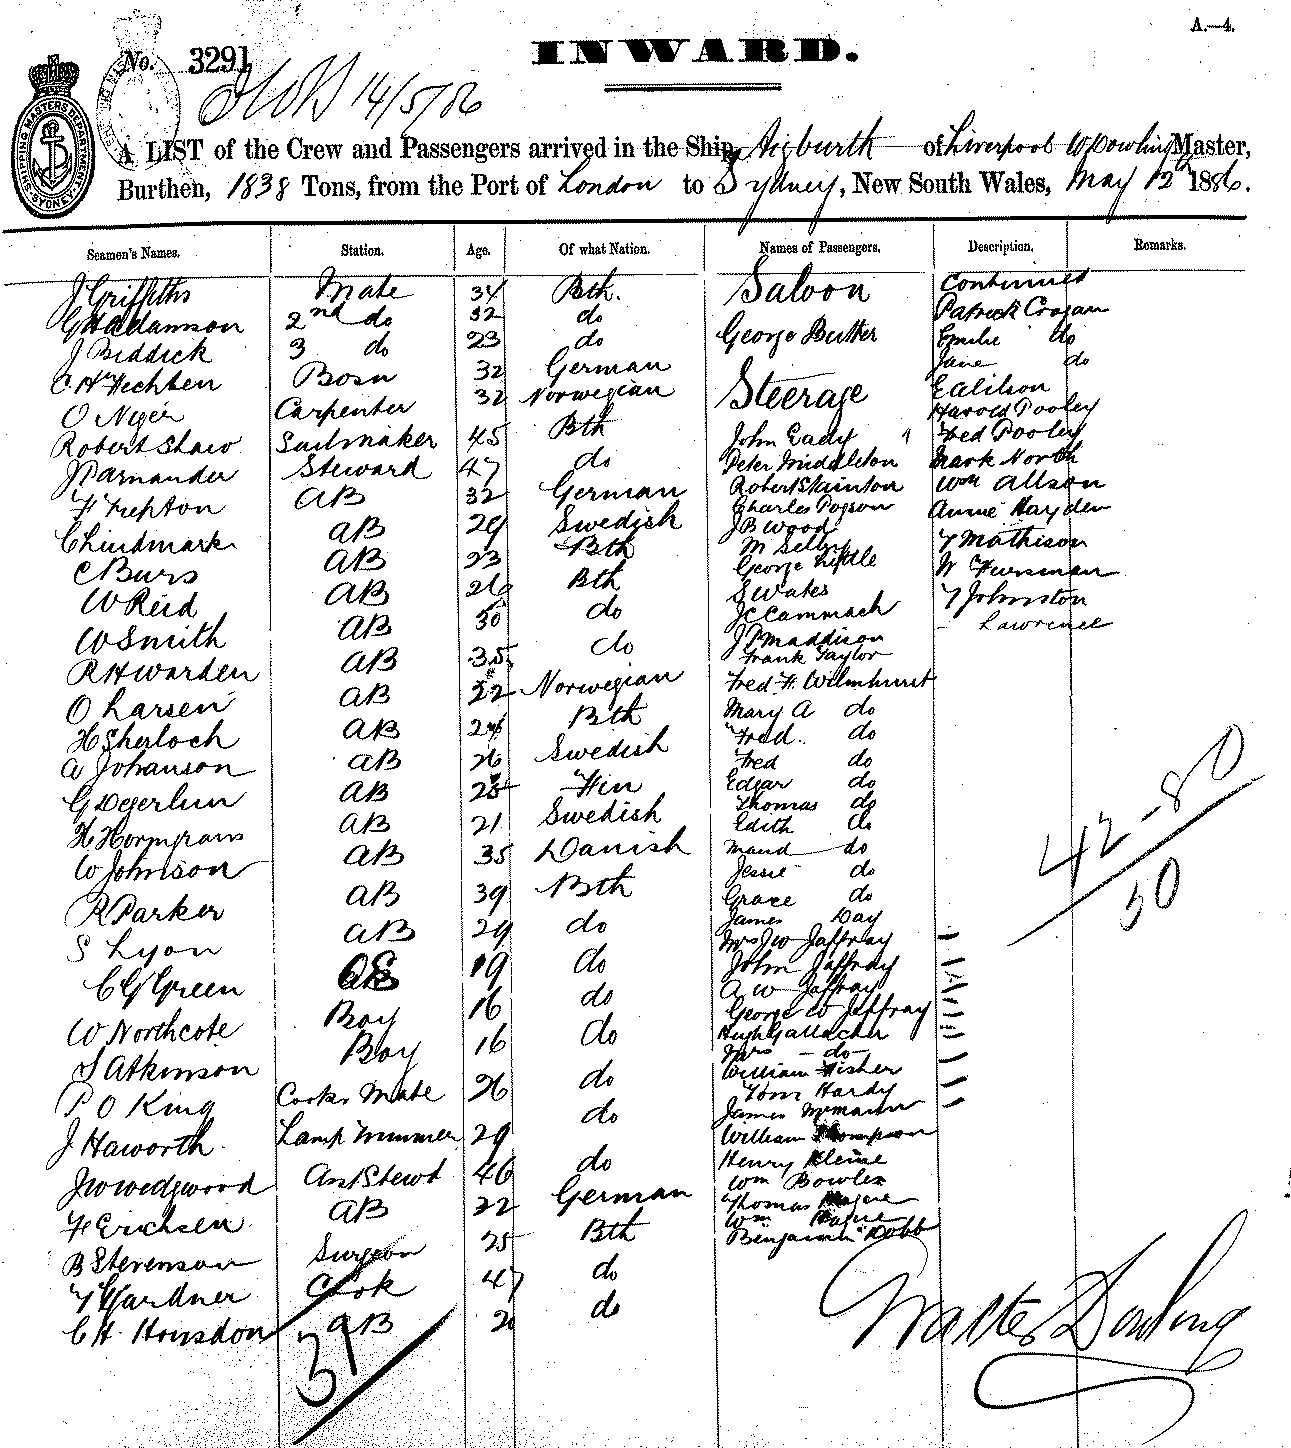 A.—4.
No. 3291
INWARD.
14/5/86
SHIPPING MASTERS DEPARTMENT SYDNEY
A LIST of the Crew and Passengers arrived in the Ship Aigburth of Liverpool W Dowling Master,
Burthen, 1838 Tons, from the Port of London to Sydney, New South Wales, May 12th 1886.
Seamen's Names. Station. Age. Of what Nation. Names of Passengers. Description. Remarks.
J Griffiths Mate 34 Bth. Saloon Continued
G H Adamson 2nd do 32 do Patrick Crogan
J Biddick 3 do 23 do George Butler Emilie do
C H Fechsen Bosn 32 German Jane do
O Niger Carpenter 32 Norwegian Steerage E Alilson
Harold Pooley
Robert Shaw Sailmaker 45 Bth John Eady Fred Pooley
J Parnander Steward 47 do Peter Middleton Mark North
F Frepton AB 32 German Robert Skinton Wm Allson
Charles Pogson Annie Hayden
C Lindmark AB 29 Swedish J B Wood
C Burs AB 23 Bth M Selby T Mathison
George Liddle W Fursman
W Reid AB 26 Bth S Wates T Johnston
W Smith AB 30 do J C Cammack Lawrence
R H Warden AB 35 do J P Maddison
Frank Taylor
O Larsen AB 22 Norwegian Fred. H. Wilmhurst
H Sherloch AB 24 Bth Mary A do
Fred. do
A Johanson AB 26 Swedish Fred do
G Degerlun AB 25 Fin Edgar do
Thomas do
H Horngrans AB 21 Swedish Edith do
W Johnson AB 35 Danish Maud do
Jessie do
R Parker AB 39 Bth Grace do
S Lyon AB 29 do James Day
Mrs J W Jaffray
C G Green OS 19 do John Jaffray
W Northcote Boy 16 do A W Jaffray
George W Jaffray
S Atkinson Boy 16 do Hugh Gallacher
Mrs do
P O King Cooks Mate 26 do William Fisher
Tom Hardy
J Haworth Lamp Trimmer 29 do James McMann
William Thompson
J W Wedgwood Ast Stewd 46 do Henry Kleine
Wm Bowles
F Erichsen AB 22 German Thomas Hague
Wm Hague
B Stevenson Surgeon 25 Bth Benjamin Dobb
T Gardner Cook 47 do
C H Housdon AB do
31
42-80
50
Walter Dowling